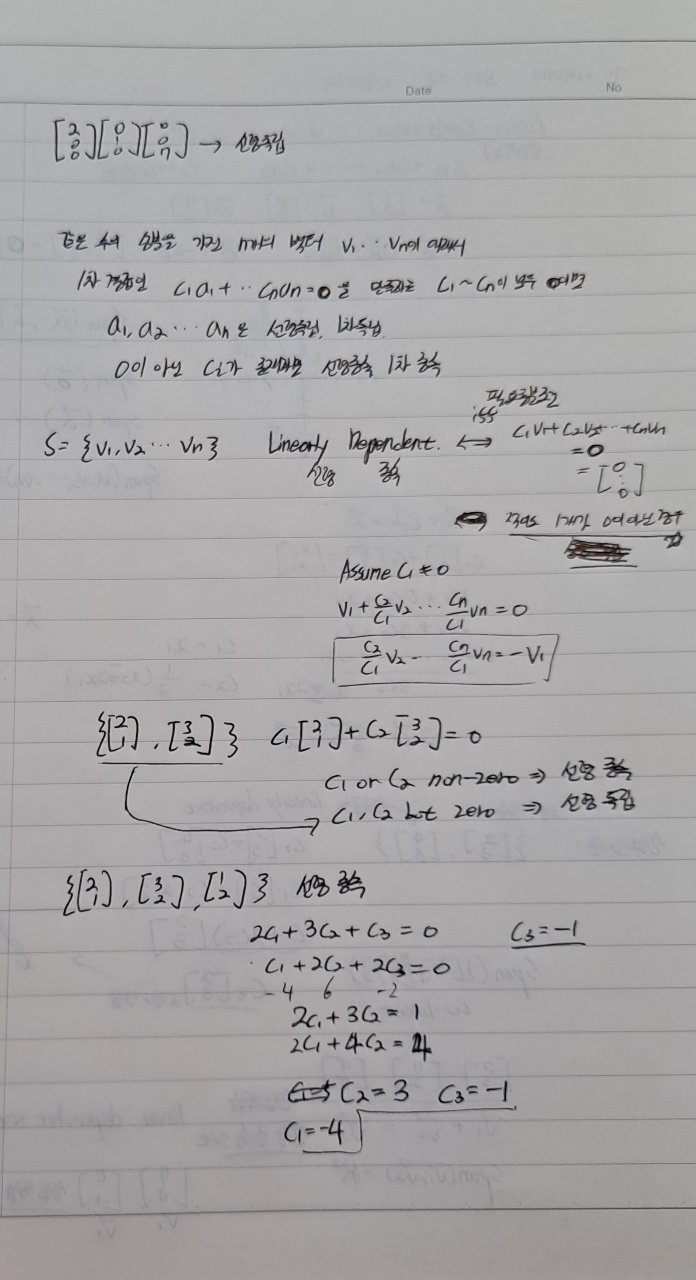 Date No
[2 0 0][0 1 0][0 0 7] → 선형독립
모든 수의 성분을 가진 m개의 벡터 v₁ ‥ vn에 의해서
1차 결합인 c₁a₁ + ‥ cnan = 0 을 만족하는 c₁ ~ cn이 모두 0이면
a₁, a₂ ‥ an은 선형독립, 1차독립,
0이 아닌 ci가 존재하면 선형종속 1차 종속
필요충분조건
S = {v₁, v₂ ‥ vn} Linearly Dependent. ⟷ iff c₁v₁ + c₂v₂ ‥ + cnvn
선형 종속 = 0
= [0 ⋮ 0]
적어도 1개가 0이 아닌 경우
Assume c₁ ≠ 0
v₁ + c₂/c₁ v₂ ‥ cn/c₁ vn = 0
c₂/c₁ v₂ ‥ cn/c₁ vn = -v₁
{[2 1], [3 2]} c₁[2 1] + c₂[3 2] = 0
c₁ or c₂ non-zero ⇒ 선형 종속
c₁, c₂ bot zero ⇒ 선형 독립
{[2 1], [3 2], [1 2]} 선형 종속
2c₁ + 3c₂ + c₃ = 0 c₃ = -1
c₁ + 2c₂ + 2c₃ = 0
-4 6 -2
2c₁ + 3c₂ = 1
2c₁ + 4c₂ = 4
c₂ = 3 c₃ = -1
c₁ = -4